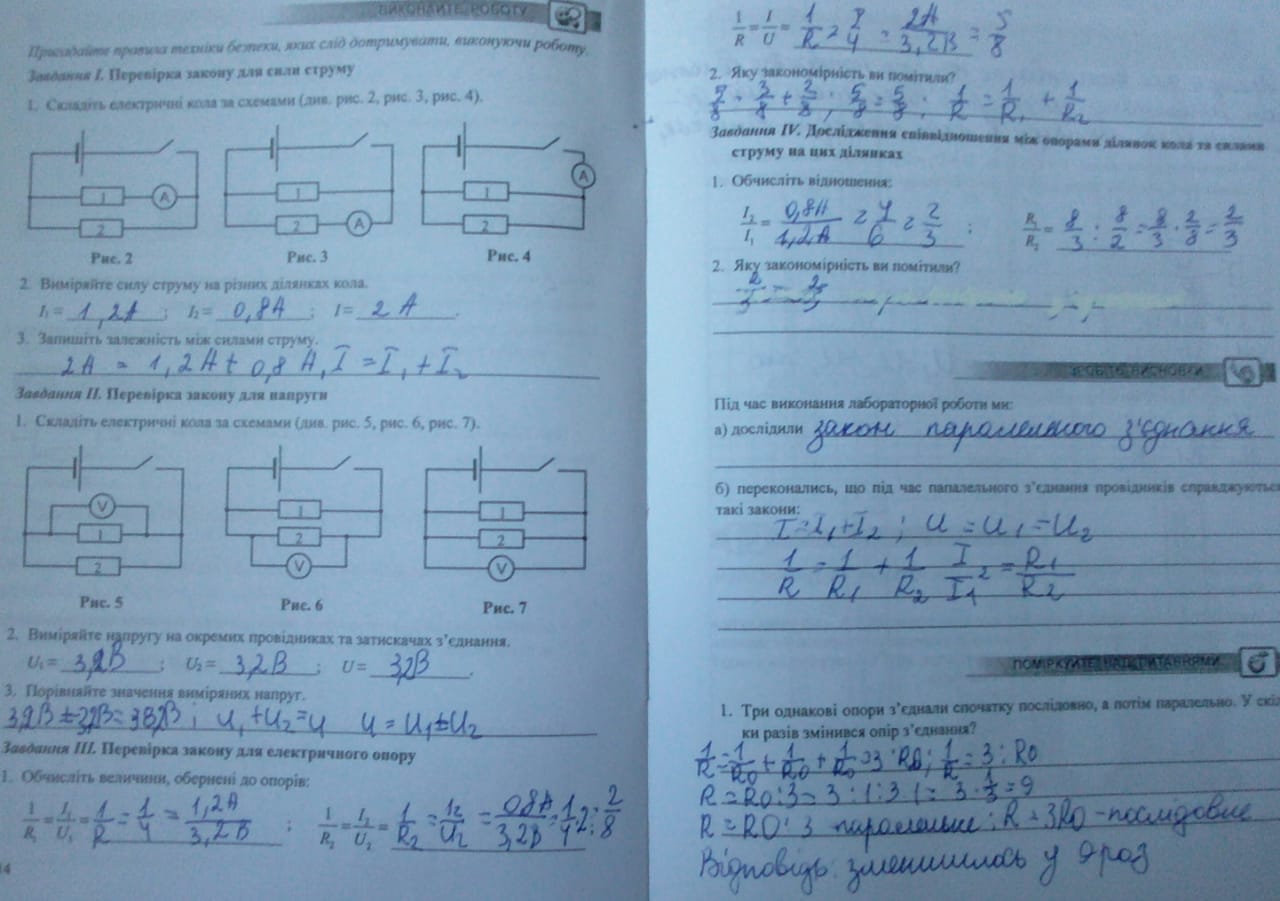 ВИКОНАЙТЕ РОБОТУ
Пригадайте правила техніки безпеки, яких слід дотримувати, виконуючи роботу.
Завдання I. Перевірка закону для сили струму
1. Складіть електричні кола за схемами (див. рис. 2, рис. 3, рис. 4).
1 A 2
1 2 A
A 1 2
Рис. 2 Рис. 3 Рис. 4
2. Виміряйте силу струму на різних ділянках кола.
I₁ = 1,2А ; I₂ = 0,8А ; I = 2 А .
3. Запишіть залежність між силами струму.
2А = 1,2А + 0,8 А, I = I₁ + I₂
Завдання II. Перевірка закону для напруги
1. Складіть електричні кола за схемами (див. рис. 5, рис. 6, рис. 7).
V 1 2
1 2 V
1 2 V
Рис. 5 Рис. 6 Рис. 7
2. Виміряйте напругу на окремих провідниках та затискачах з’єднання.
U₁ = 3,2В ; U₂ = 3,2В ; U = 3,2В .
3. Порівняйте значення виміряних напруг.
U = U₁ = U₂
Завдання III. Перевірка закону для електричного опору
1. Обчисліть величини, обернені до опорів:
1/R₁ = I₁/U₁ = 1/R = 1/4 = 1,2А/3,2В ; 1/R₂ = I₂/U₂ = 1/R₂ = I₂/U₂ = 0,8А/3,2В = 2/8
14
1/R = I/U = 1/R = 2А/3,2В = 5/8
2. Яку закономірність ви помітили?
3/8 + 2/8, 5/8 = 5/8 . 1/R = 1/R₁ + 1/R₂
Завдання IV. Дослідження співвідношення між опорами ділянок кола та силами
струму на цих ділянках
1. Обчисліть відношення:
I₂/I₁ = 0,8А/1,2А = 4/6 = 2/3 ; R₁/R₂ = 8/3 : 8/2 = 8/3 · 2/8 = 2/3
2. Яку закономірність ви помітили?
2/3 = 2/3
ЗРОБІТЬ ВИСНОВКИ
Під час виконання лабораторної роботи ми:
а) дослідили закон паралельного з'єднання
б) переконались, що під час папалельного з’єднання провідників справджуються
такі закони:
I = I₁ + I₂ ; U = U₁ = U₂
1/R = 1/R₁ + 1/R₂ I₂/I₁ = R₁/R₂
ПОМІРКУЙТЕ НАД ПИТАННЯМИ
1. Три однакові опори з’єднали спочатку послідовно, а потім паралельно. У скіль
ки разів змінився опір з’єднання?
1/R = 1/R0 + 1/R0 + 1/R0 = 3 : R0; 1/R = 3 : R0
R = R0 : 3 = 3 : 1 : 3 · 1 = 3 · 1/3 = 9
R = R0 : 3 паралельне; R = 3R0 - послідовне
Відповідь: зменшилось у 9 раз